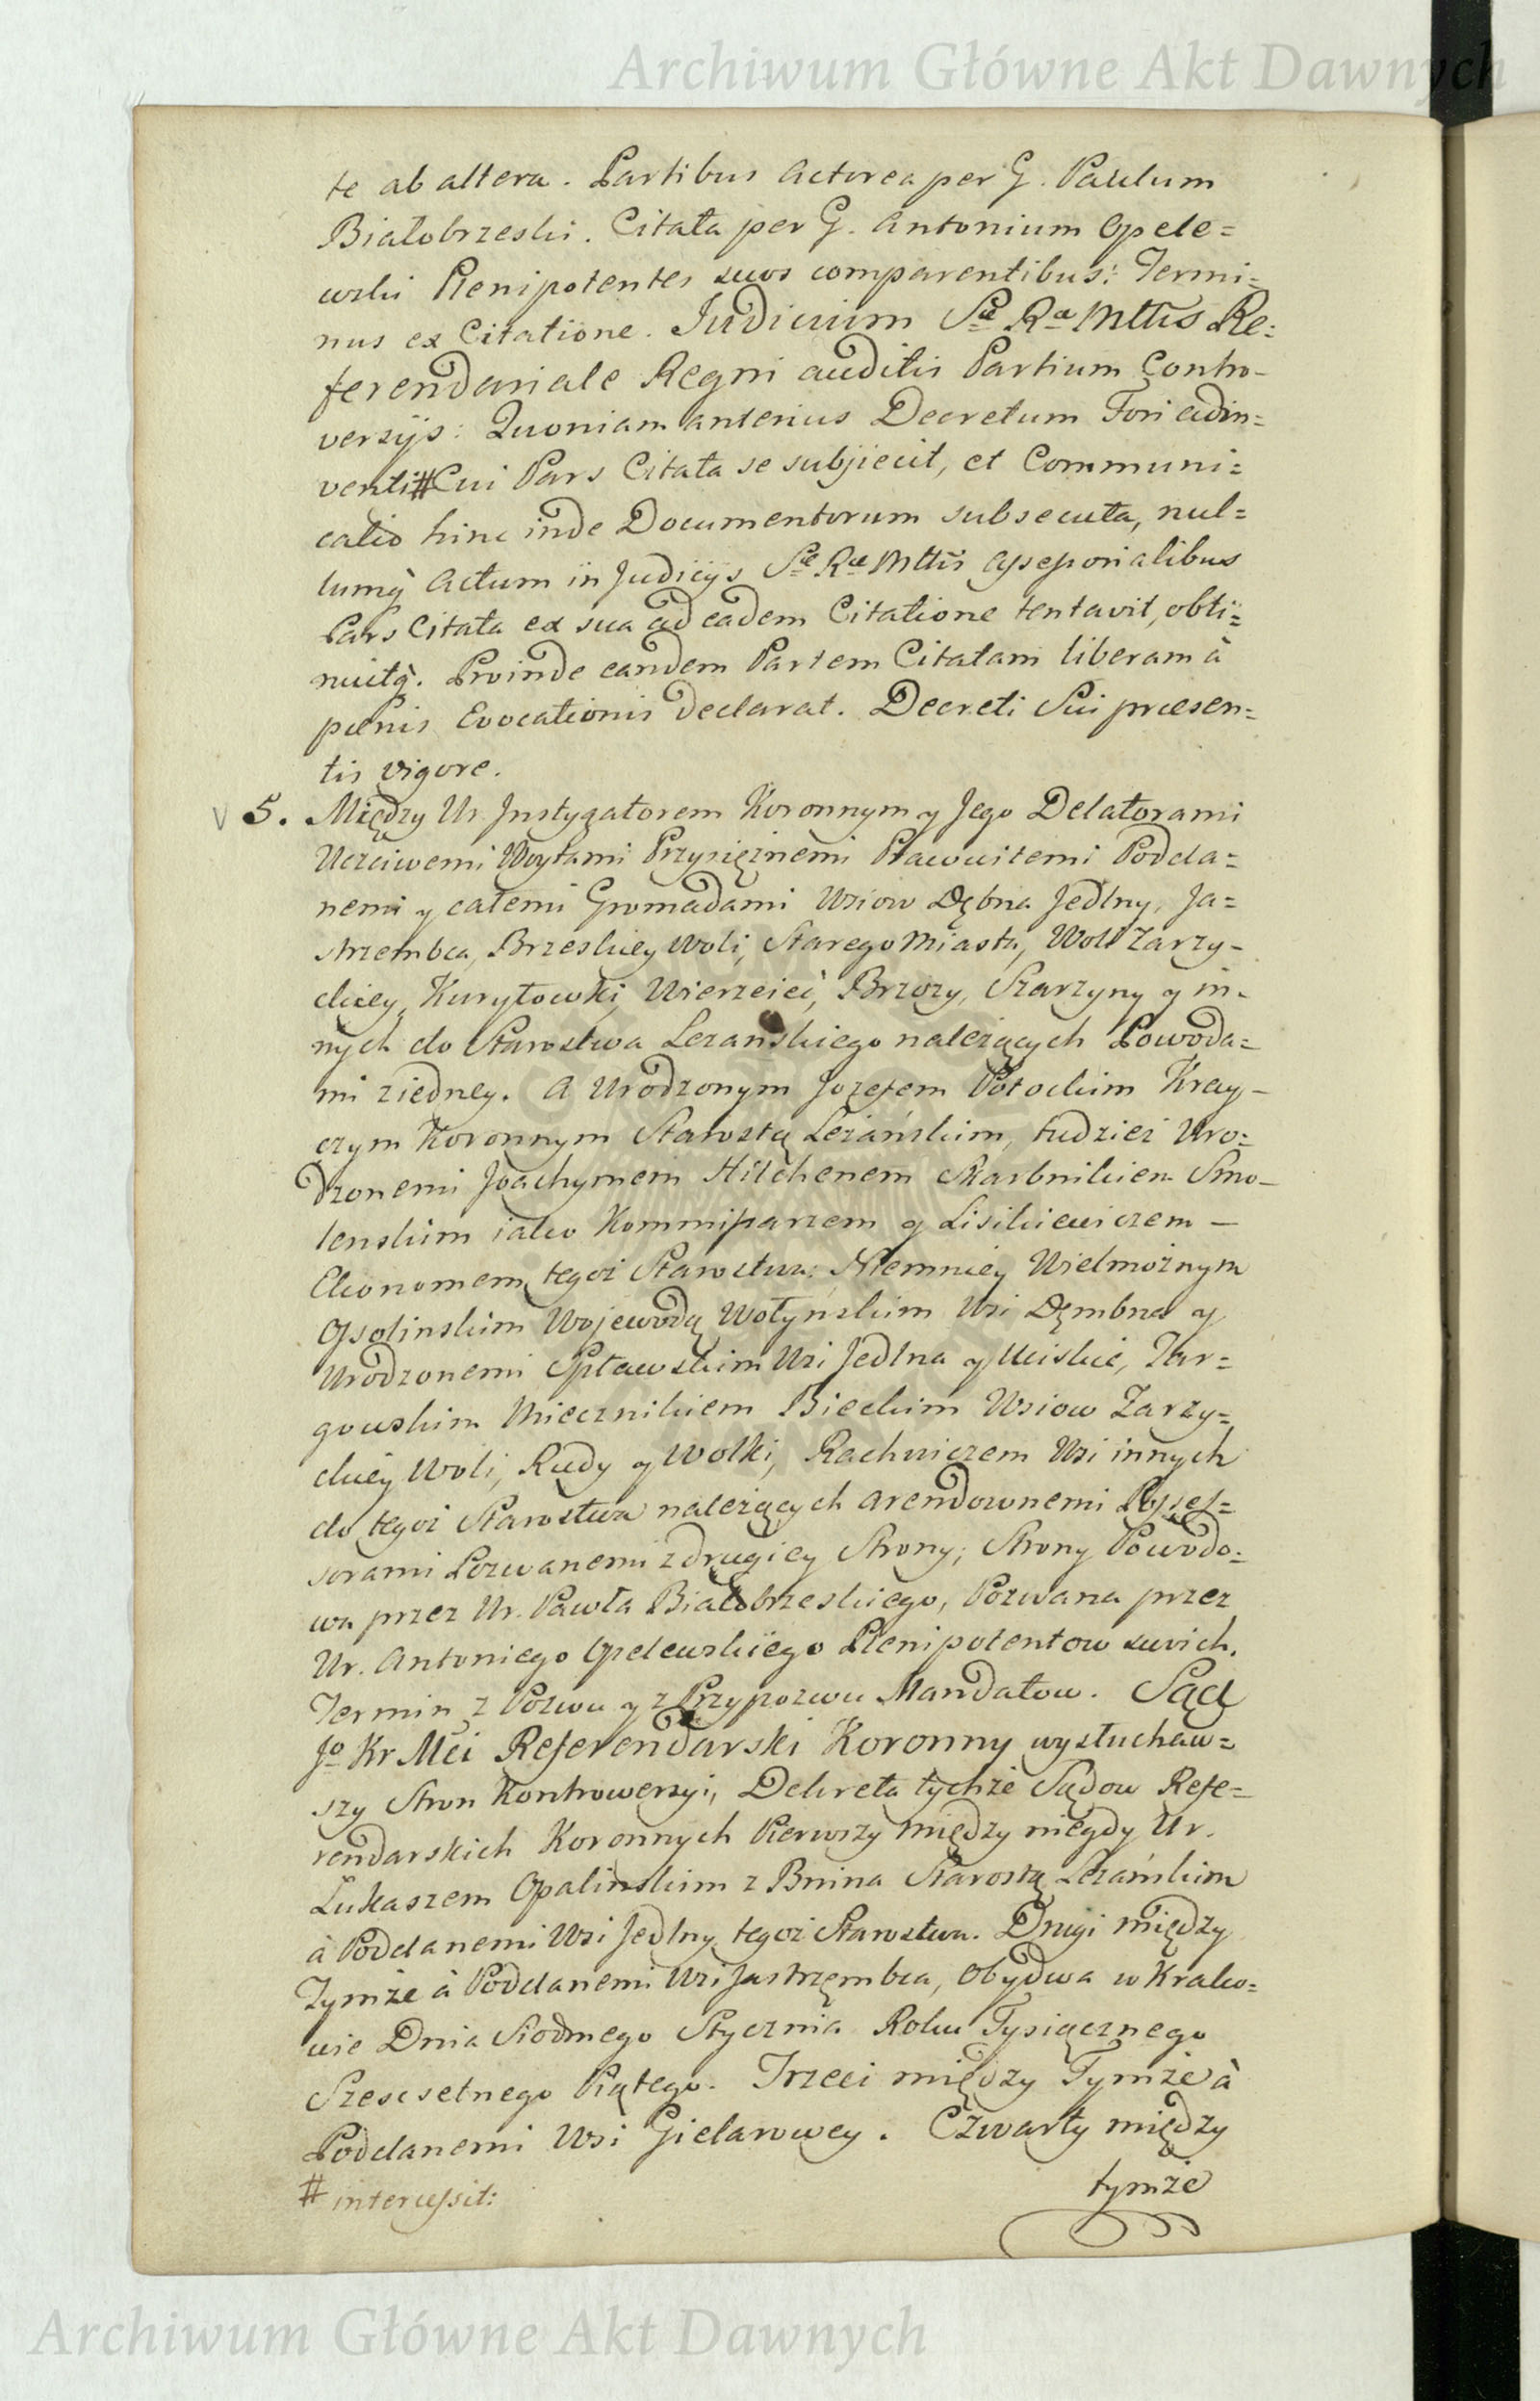 Archiwum Główne Akt Dawnych
te ab altera. Partibus Actorea per G. Paulum
Białobrzeski. Citata per G. Antonium Opele=
wski Plenipotentes suos comparentibus: Termi=
nus ex Citatione. Judicium Sæ Ræ Mttis Re:
ferendariale Regni auditis Partium Contro-
versijs: Quoniam anterius Decretum Fori adin=
venti # Cui Pars Citata se subjiecit, et Communi=
catio hinc inde Documentorum subsecuta, nul=
lumq̀ Actum in Judicijs Sæ Ræ Mttis Assessorialibus
Pars Citata ex sua ad eadem Citatione tentavit, obti=
nuitq̀. Proinde eandem Partem Citatam liberam à
pænis Evocationis declarat. Decreti Sui præsen=
tis vigore.
5. Między Ur Instygatorem Koronnym y Jego Delatorami
Uczciwemi Woytami Przysiężnemi Pracowitemi Podda=
nemi y całemi Gromadami Wsiow Dębna Jedlny, Ja=
strzembca, Brzeskiey Woli, Starego Miasta, Woli Zarzy-
ckiey, Kuryłowki, Wierzeici, Brzozy, Szarzyny y in-
nych do Starostwa Lezanskiego należących Powoda=
mi ziedney. A Urodzonym Jozefem Potockim Kray-
czym Koronnym Starostą Leżańskim, tudzież Uro=
dzonemi Joachymem Hilchenem Skarbnikiem Smo-
lenskim iako Kommissarzem y Lisikiewiczem -
Ekonomem tegoż Starostwa: Niemniey Wielmożnym
Ossolinskim Wojewodą Wołyńskim Wsi Dębna y
Urodzonemi Spławskim Wsi Jedlna y Uiskie, Tar=
gowskim Miecznikiem Bieckim Wsiow Zarzy=
ckiey Woli, Rudy y Wolki, Rachwiczem Wsi innych
do tegoż Starostwa należących arendownemi Posses=
sorami Pozwanemi z drugiey Strony; Strony Powodo=
wa przez Ur. Pawła Białobrzeskiego, Pozwana przez
Ur. Antoniego Opelewskiego Plenipotentow swoich.
Termin z Pozwu y z Przypozwu Mandatow. Sąd
Jo Kr Mci Referendarski Koronny wysłuchaw=
szy Stron Kontrowersyi, Dekreta tychże Sądow Refe=
rendarskich Koronnych Pierwszy między niegdy Ur.
Lukaszem Opalinskim z Bnina Starostą Leżańskim
à Poddanemi Wsi Jedlny tegoż Starostwa. Drugi między
Tymże à Poddanemi Wsi Jastrzembca, Obydwa w Krako=
wie Dnia Siodmego Stycznia Roku Tysiącznego
Szescsetnego Piątego. Trzeci między Tymże à
Poddanemi Wsi Gielarowey. Czwarty między
tymże
# intercessit:
Archiwum Główne Akt Dawnych